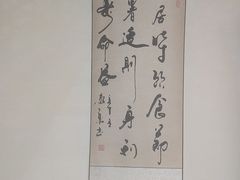 居時飲食節
暑適則身利
壽命益